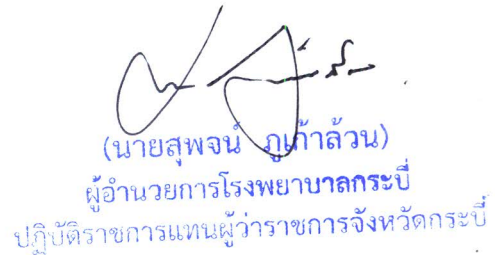 (นายสุพจน์ ภูเก้าล้วน)
ผู้อำนวยการโรงพยาบาลกระบี่
ปฏิบัติราชการแทนผู้ว่าราชการจังหวัดกระบี่